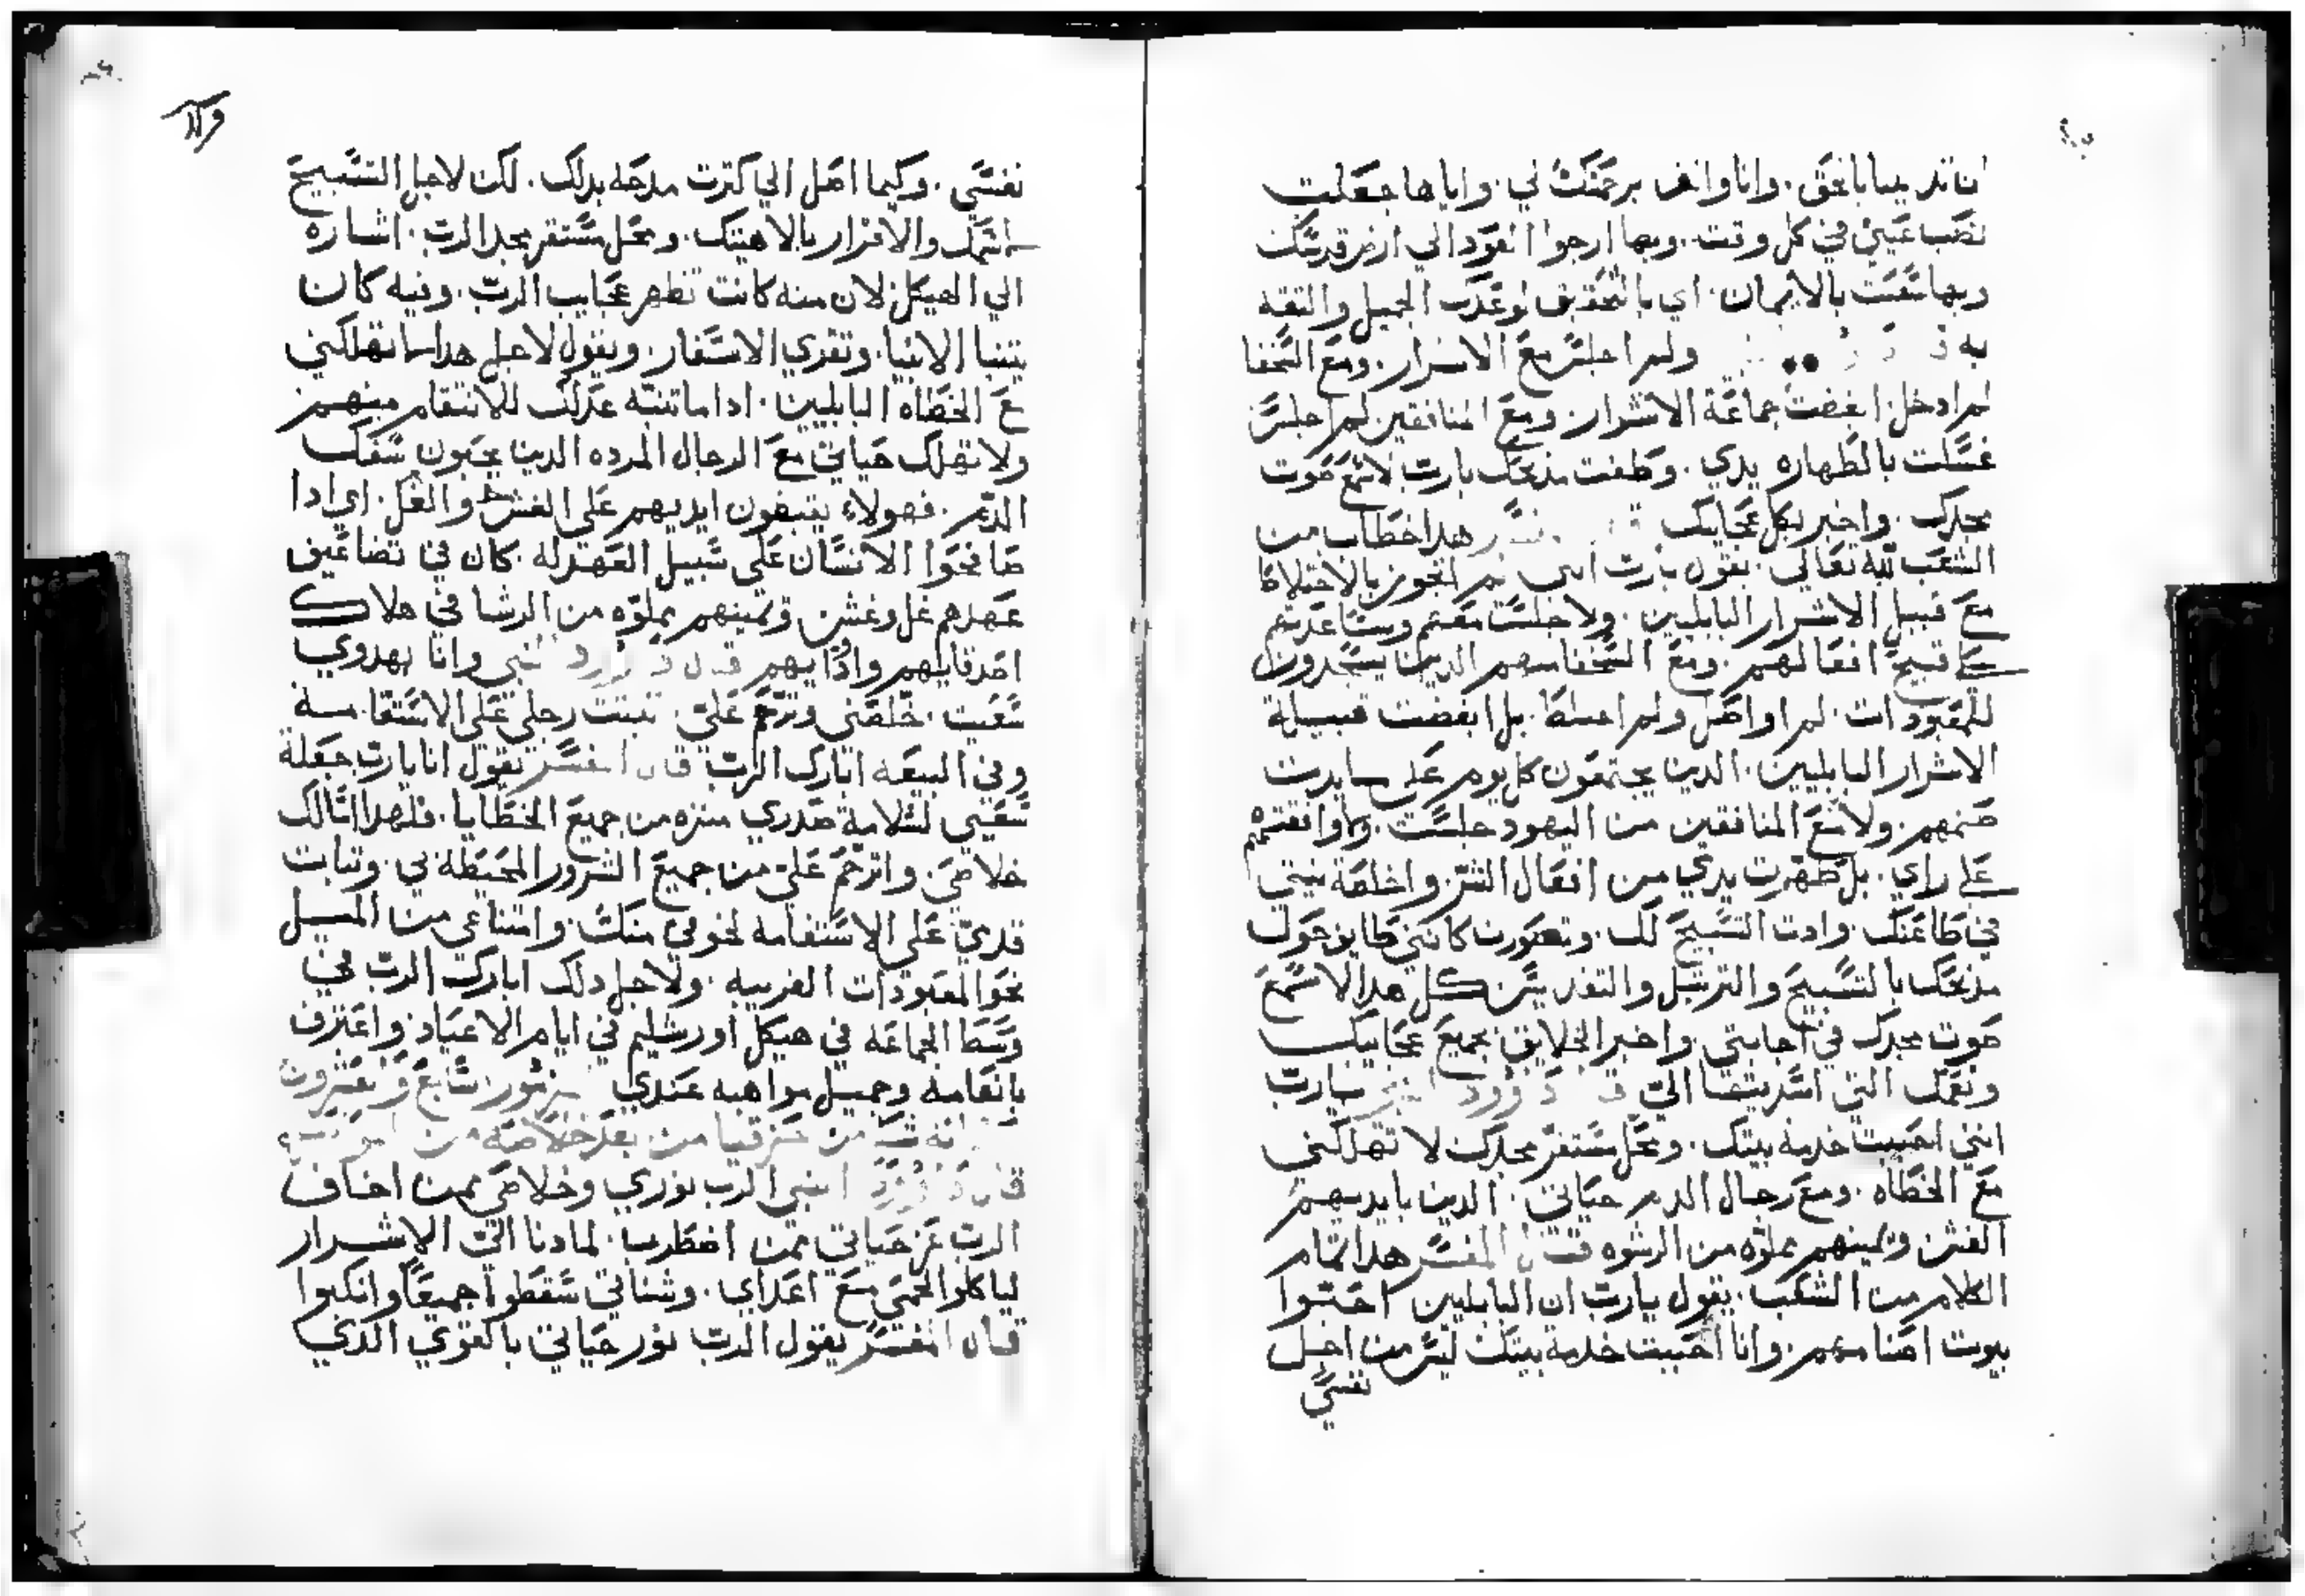 بالحق. وانا واثق برحمتك لي. واياها جعلت
نصب عيني في كل وقت. وبها ارجوا العود الي ارض قدسك
وبها شعيت بالايمان. اي بالتحقيق لوعدك الجميل والتقه
به ولم اجلس مع الاشرار. ومع السخفا
لم ادخل ابغضت جماعة الاشرار. ومع المنافقين لم اجلس
غسلت بالطهاره يدي. وطفت مذبحك يارب لاسمع صوت
مجدك. واخبر بكل عجايبك هدا خطاب من
الشعب لله تعالي. يقول يارب انني لم اتجوز بالاختلاط
مع قبيل الاشرار البابليين. ولا جلست معهم وساعدتهم
علي قبيح افعالهم. ومع السخفا منهم الدين يسجدون
للمعبودات. لم اواصل ولم اختلط. بل ابغضت قبيلة
الاشرار البابليين. الدين يجتمعون كل يوم علي مايدت
صنمهم. ولا مع المنافقين من اليهود جلست. ولا وافقتهم
علي راي. بل طهرت يدي من افعال الشر. واخلصة نيتي
في طاعتك. وادت التسبيح لك. وتصورت كانني طايف حول
مذبحك بالتسبيح والترتيل والتقديس. كل هدا لاسمع
صوت مجدك في اجابتي. واخبر الخلايق بجميع عجايبك
ونعمك التي اسديتها الي داوود النبي يارب
انني احببت خدمة بيتك. ومحل مستقر مجدك لا تهلكني
مع الخطاه. ومع رجال الدم حياتي. الدين بايديهم
الغش ويمينهم مملوه من الرشوه قال المفسر هدا تمام
الكلام من الشعب. يقول يارب ان البابليين احبوا
بيوت اصنامهم. وانا احببت خدمة بيتك ليس من اجل
نفسي
نفسي. وكيما اصل الي كترت مدحه بدلك. لكن لاجل التسبيح
لاسمك والاقرار بالاهيتك. ومحل مستقر مجد الرب. اشاره
الي الهيكل لان منه كانت تظهر عجايب الرب. وفيه كان
يتنبا الانبيا. وتقري الاسفار. ويقول لاجل هدا لا تهلكني
مع الخطاه البابليين. ادا ما تنبه عدلك للانتقام منهم
ولا تهلك حياتي مع الرجال المرده الدين يحبون سفك
الدم. فهولاء يقبضون ايديهم علي الغش والغل. اي ادا
صافحوا الانسان علي سبيل العهد له. كان في تضاعيف
عهدهم غل وغش. ويمينهم مملوه من الرشا في هلاك
اصدقايهم واودايهم قال داوود النبي وانا بهدوي
شعيت. خلصني وترحم علي. تبتت رجلي علي الاستقامة
وفي البيعه ابارك الرب قال المفسر يقول انا يارب جعلة
شعيي لسلامة صدري متنزه من جميع الخطايا. فلهدا اسالك
خلاصي. واترحم علي من جميع الشرور المحيطه بي. وتبات
قدمي علي الاستقامه لخوفي منك. وامتناعي من الميل
نحو المعبودات الغريبه. ولاجل دلك ابارك الرب في
وسط الجماعه في هيكل اورشليم في ايام الاعياد. واعترف
بانعامه وجميل مواهبه عندي مزمور سابع وعشرون
من حزقيا من بعد خلاصه من
قال داوود النبي الرب نوري وخلاصي ممن اخاف
الرب عز حياتي ممن اضطرب. لما دنا الي الاشرار
لياكلوا لحمي مع اعداي. وشناتي سقطوا جميعا وانكبوا
قال المفسر يقول الرب نور حياتي بالقوي الدي